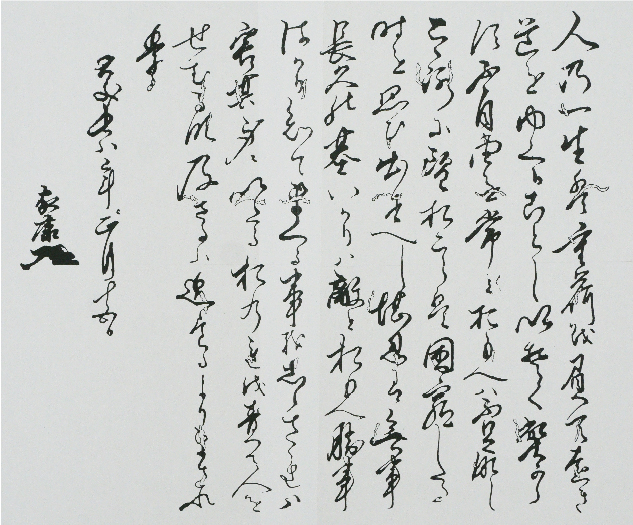 人の一生は重荷を負て遠き
道をゆくかことしいそくへから
す不自由を常とおもへハ不足なし
こゝろに望おこらは困窮したる
時を思ひ出すへし堪忍は無事
長久の基いかりハ敵とおもへ勝事
はかり知て負る事をしらされハ
害其身にいたるおのれを責て人を
せむるな及さるは過たるよりまされ
り
慶長八年正月十五日
家康